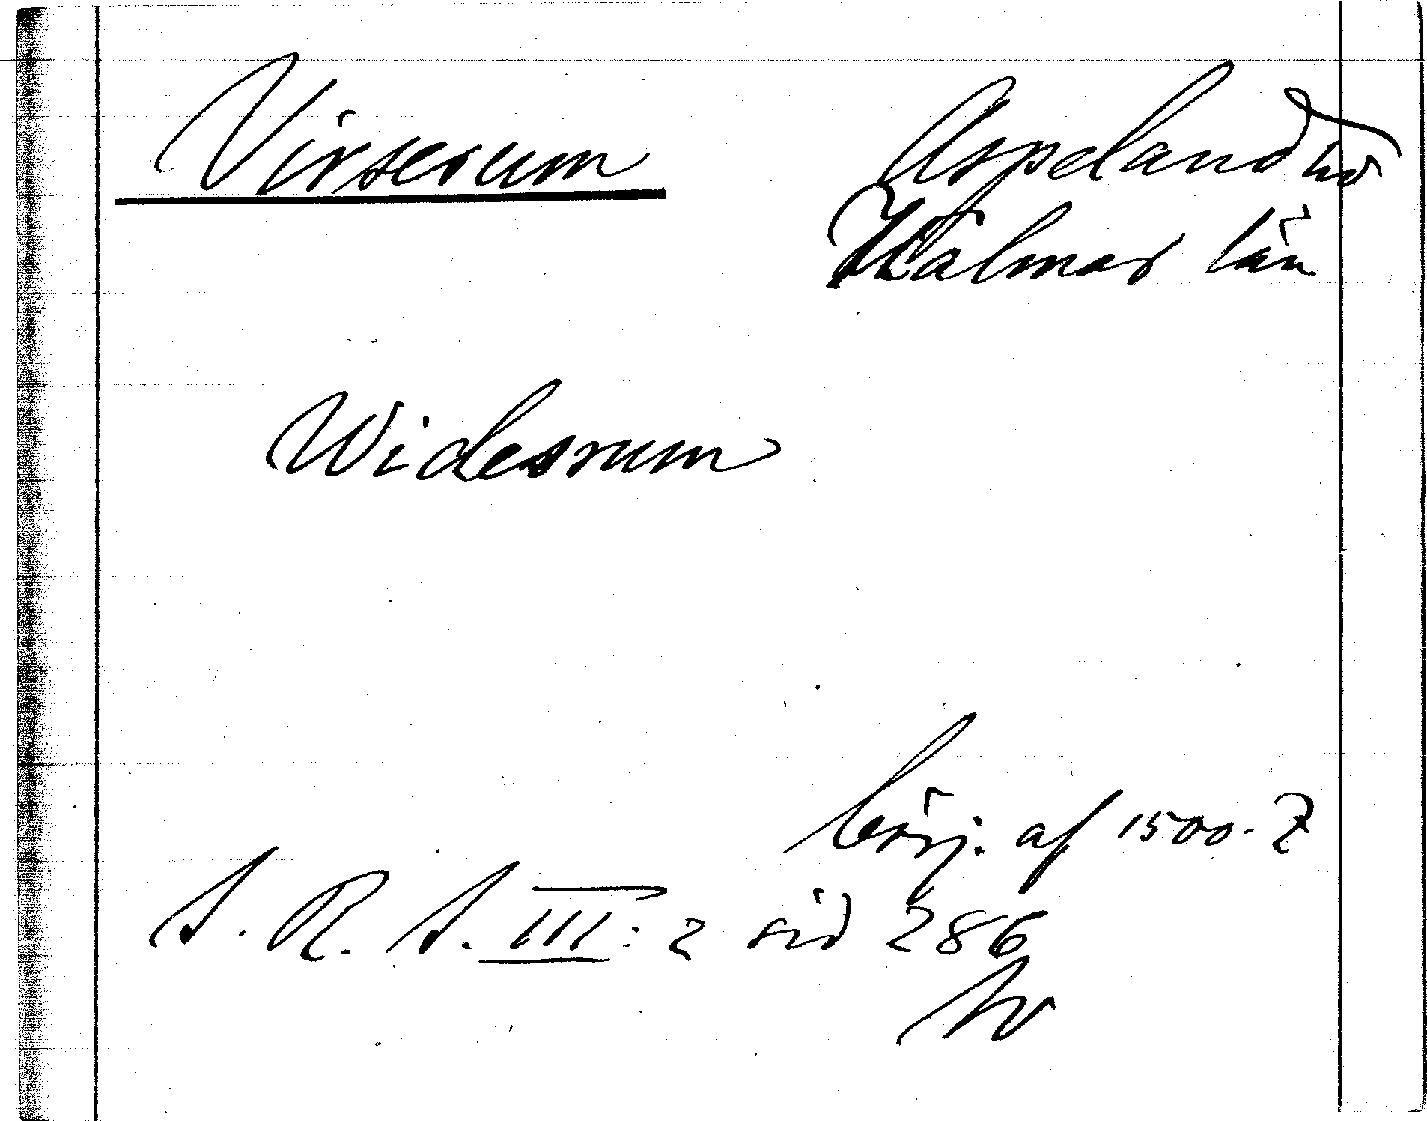 Virserum
Aspeland hd
Kalmar län
Widesrum
börj. af 1500-t
S. R. S. III: 2 sid 286